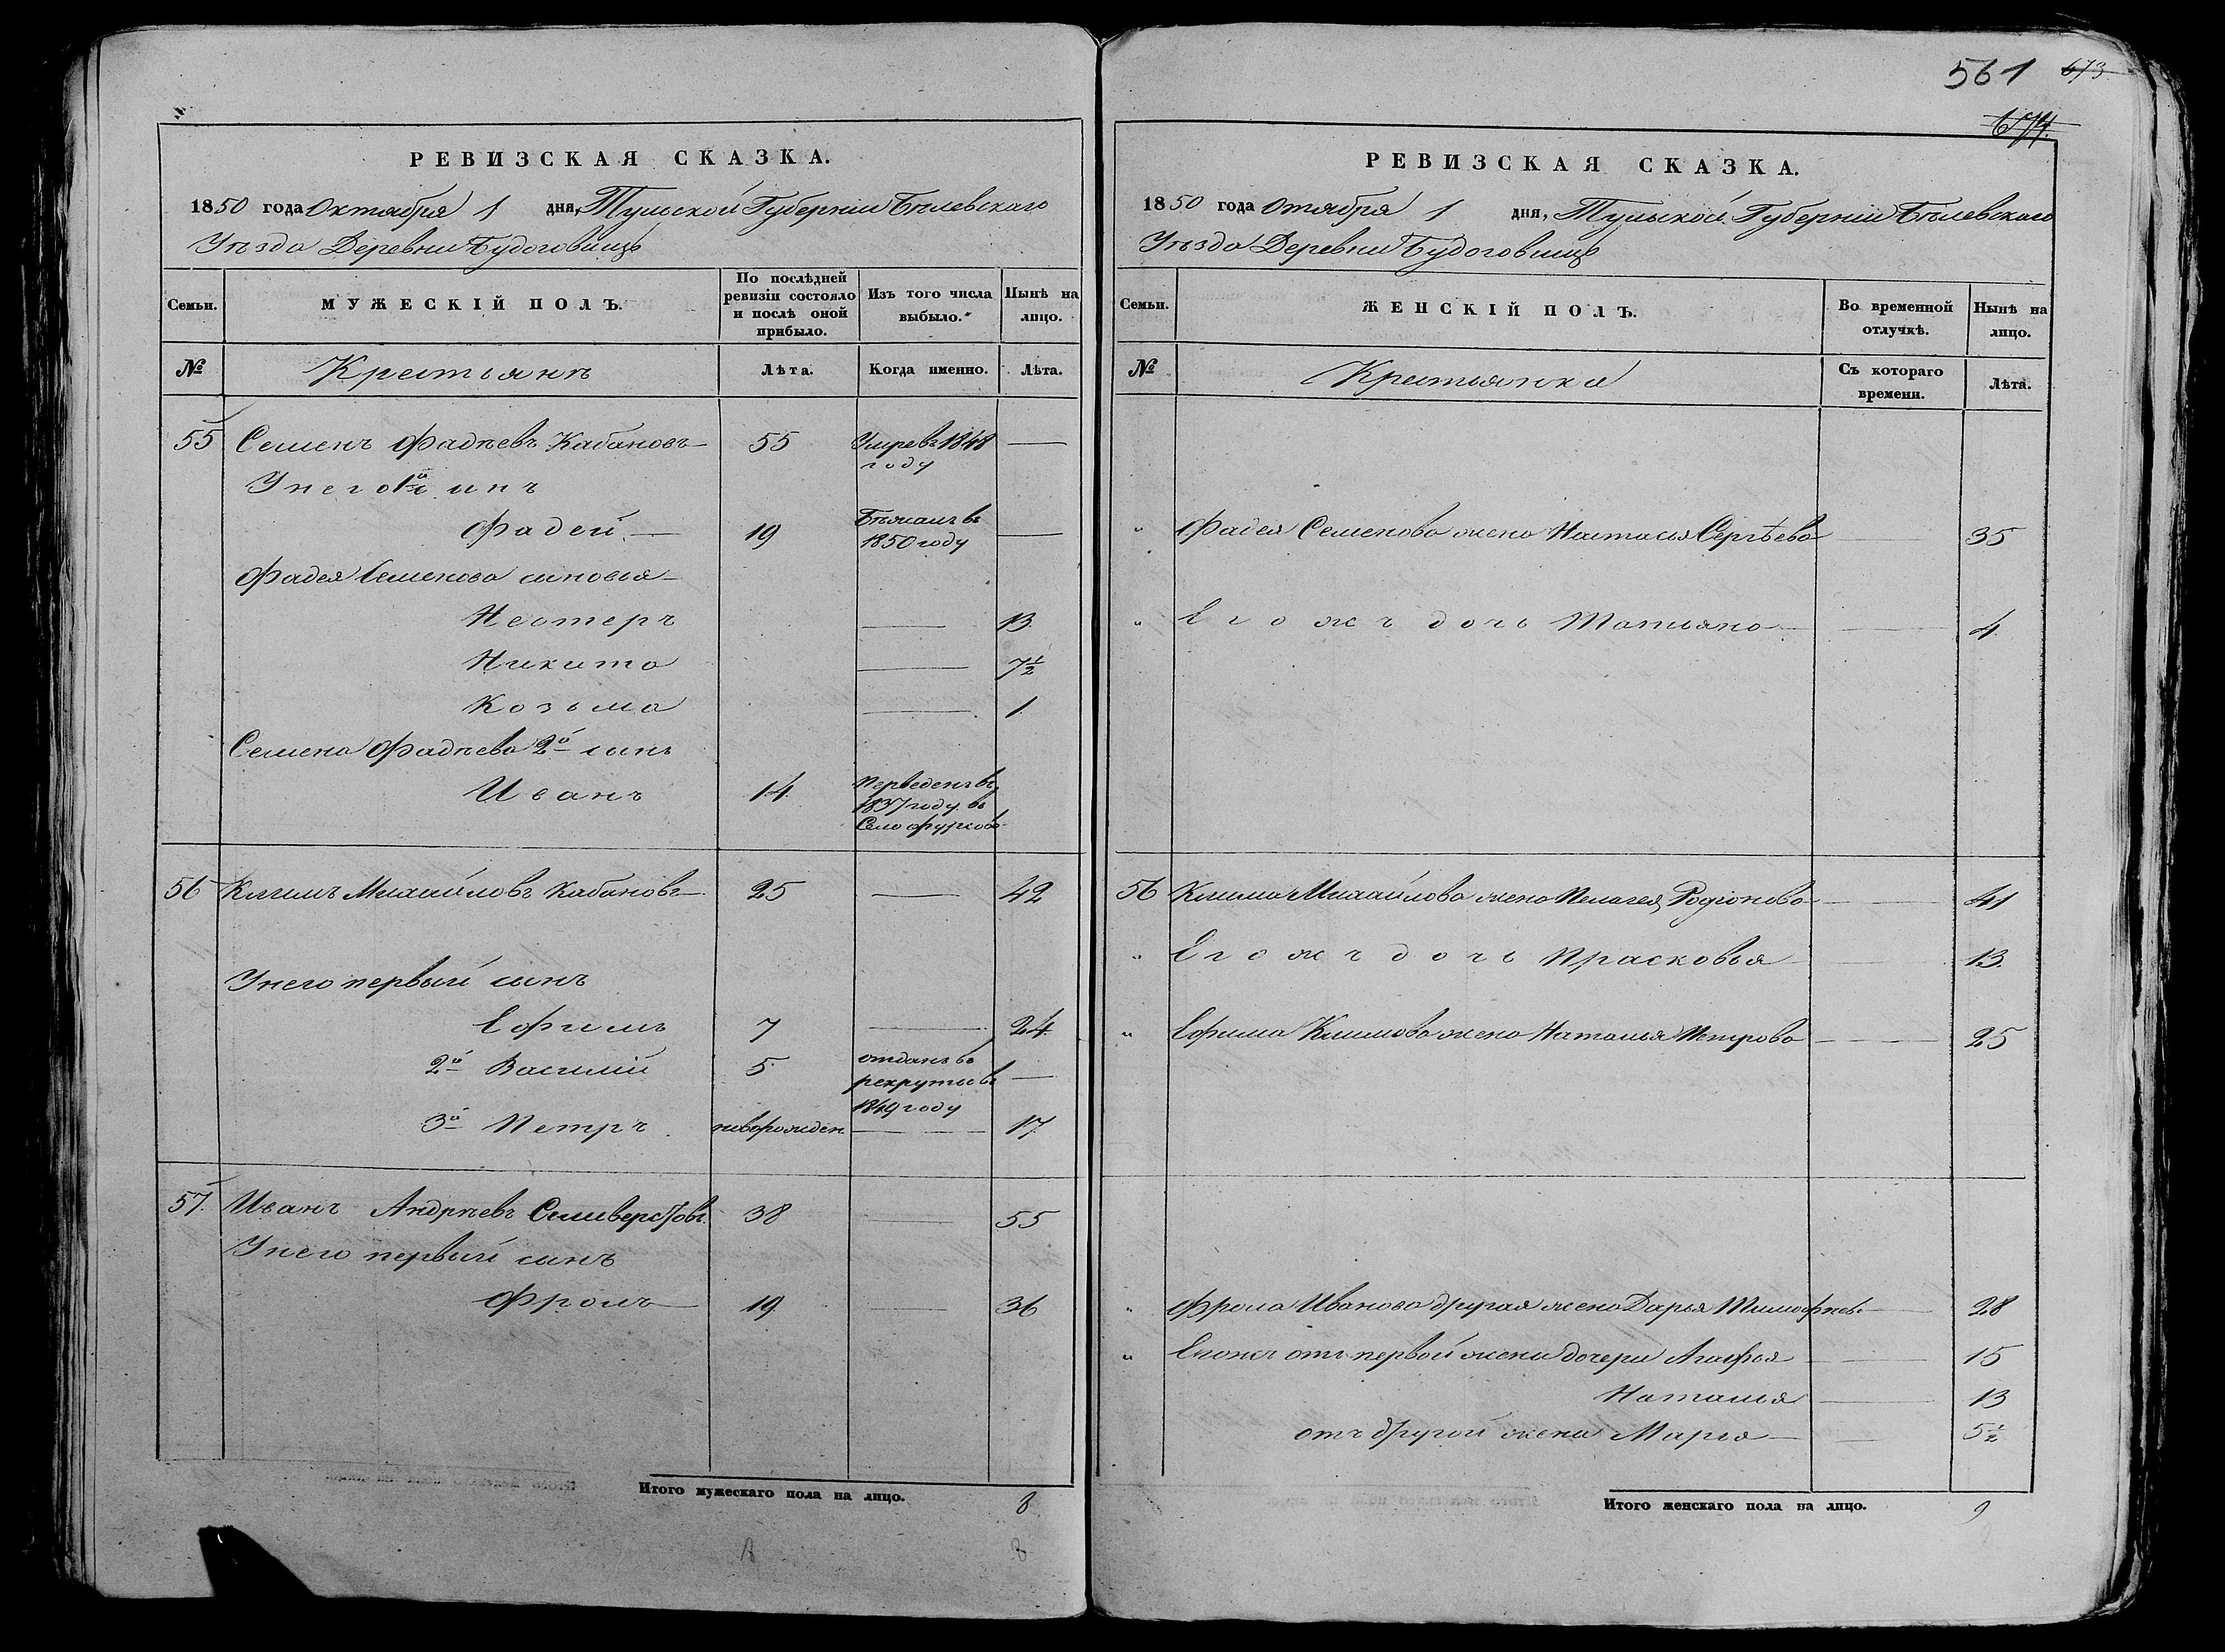 561 673
674.
РЕВИЗСКАЯ СКАЗКА.
1850 года Октября 1 дня, Тульской Губерніи Бѣлевскаго
Уѣзда Деревни Будоговищь
Семьи.
МУЖЕСКІЙ ПОЛЪ.
По послѣдней ревизіи состояло и послѣ оной прибыло.
Изъ того числа выбыло.
Нынѣ на лицо.
№ Крестьянъ Лѣта. Когда именно. Лѣта.
55 Семенъ Фадѣевъ Кабановъ 55 Умре въ 1848 году —
У него 1й сынъ
Фадей — 19 Бѣжалъ въ 1850 году —
Фадея Семенова сыновья
Неотеръ — 13.
Никита — 7½
Козьма — 1.
Семена Фадѣева 2й сынъ
Иванъ 14. Переведенъ въ 1837 году въ Село
56 Климъ Михайловъ Кабановъ 25 — 42
У него первый сынъ
Ефимъ 7 — 24.
2й Василій 5. отданъ въ рекруты въ 1849 году —
3й Петръ новорожден — 17.
57. Иванъ Андрѣевъ Селиверстовъ 38 — 55
У него первый сынъ
Фролъ 19 — 36
Итого мужескаго пола на лицо. 8
8
РЕВИЗСКАЯ СКАЗКА.
1850 года Отября 1 дня, Тульской Губерніи Бѣлевскаго
Уѣзда Деревни Будоговищь
Семьи.
ЖЕНСКІЙ ПОЛЪ.
Во временной отлучкѣ.
Нынѣ на лицо.
№ Крестьянка Съ котораго времени. Лѣта.
" Фадея Семенова жена Настасья Сергѣева — 35
" Его жъ дочь Татьяна — 4
56 Клима Михайлова жена Пелагея Родіонова — 41
" Его жъ дочь Прасковья — 13.
" Ефима Климова жена Наталья Петрова — 25
" Фрола Иванова другая жена Дарья Тимофѣев. — 28
" Его жъ отъ первой жены дочери Агафья — 15
Наталья — 13
отъ другой жены Марья — 5½
Итого женскаго пола на лицо. 9